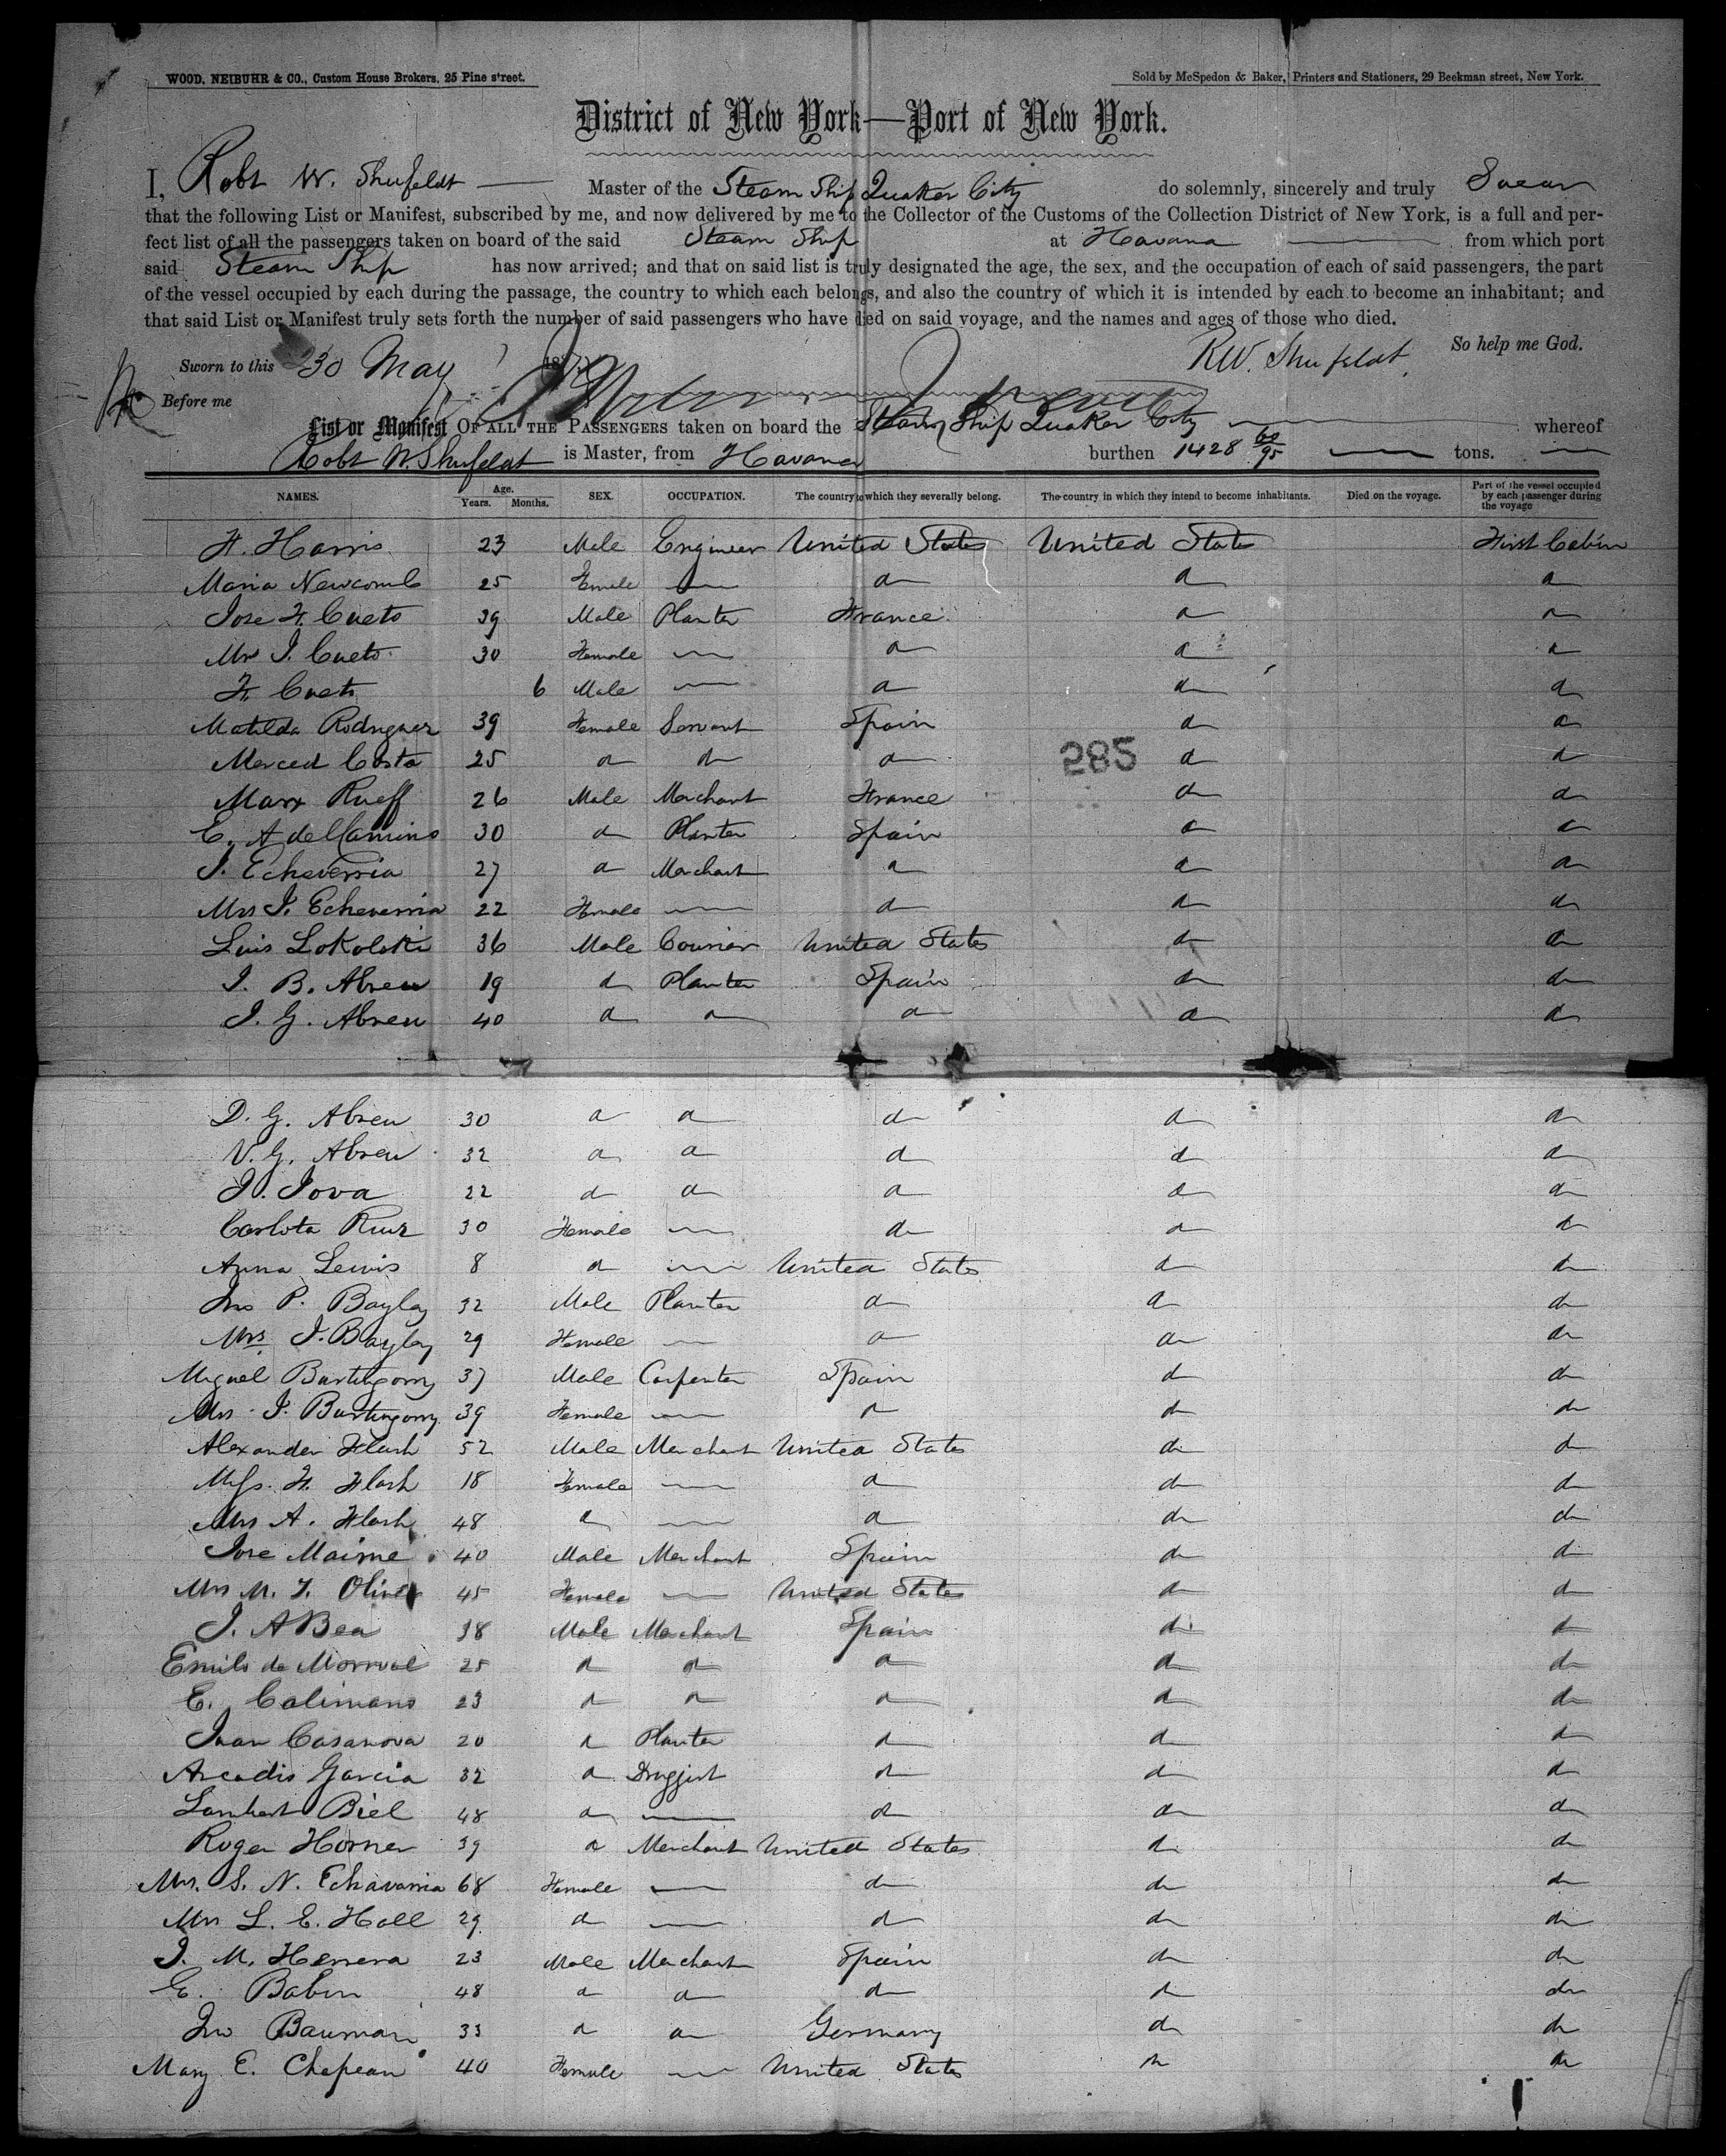 WOOD, NEIBUHR & CO., Custom House Brokers, 25 Pine street.
Sold by McSpedon & Baker, Printers and Stationers, 29 Beekman street, New York.
District of New York—Port of New York.
I, Robt W. Shufeldt Master of the Steam Ship Quaker City do solemnly, sincerely and truly Swear
that the following List or Manifest, subscribed by me, and now delivered by me to the Collector of the Customs of the Collection District of New York, is a full and per-
fect list of all the passengers taken on board of the said Steam Ship at Havana from which port
said Steam Ship has now arrived; and that on said list is truly designated the age, the sex, and the occupation of each of said passengers, the part
of the vessel occupied by each during the passage, the country to which each belongs, and also the country of which it is intended by each to become an inhabitant; and
that said List or Manifest truly sets forth the number of said passengers who have died on said voyage, and the names and ages of those who died.
So help me God.
Sworn to this 30 May 18
R.W. Shufeldt
Before me
List or Manifest OF ALL THE PASSENGERS taken on board the Steam Ship Quaker City whereof
Robt W. Shufeldt is Master, from Havana burthen 1428 60/95 tons.
NAMES. Age. Years. Months. SEX. OCCUPATION. The country to which they severally belong. The country in which they intend to become inhabitants. Died on the voyage. Part of the vessel occupied by each passenger during the voyage
H. Harris 23 Male Engineer United States United States First Cabin
Maria Newcomb 25 Female — do do do
Jose F. Cueto 39 Male Planter France do do
Mrs J. Cueto 30 Female — do do do
F. Cueto 6 Male — do do do
Matilda Rodriguez 39 Female Servant Spain do do
Merced Costa 25 do do do do do
285
Marx Rueff 26 Male Merchant France do do
E. A del Camino 30 do Planter Spain do do
J. Echeverria 27 do Merchant do do do
Mrs J. Echeverria 22 Female — do do do
Luis Lokolski 36 Male Courier United States do do
J. B. Abreu 19 do Planter Spain do do
J. G. Abreu 40 do do do do do
D. G. Abreu 30 do do do do do
V. G. Abreu 32 do do do do do
J. Jova 22 do do do do do
Carlota Ruiz 30 Female — do do do
Anna Lewis 8 do — United States do do
Jno P. Bayley 32 Male Planter do do do
Mrs J. Bayley 29 Female — do do do
Miguel 37 Male Carpenter Spain do do
Mrs J. 39 Female — do do do
Alexander Flash 52 Male Merchant United States do do
Miss F. Flash 18 Female — do do do
Mrs A. Flash 48 do — do do do
Jose Maime 40 Male Merchant Spain do do
Mrs M. F. Oliver 45 Female — United States do do
J. A Bea 38 Male Merchant Spain do do
Emilo de 25 do do do do do
E. Calimano 23 do do do do do
Juan Casanova 20 do Planter do do do
Arcadio Garcia 32 do Druggist do do do
Lambert Biel 48 do — do do do
Roger Horner 39 do Merchant United States do do
Mrs. S. N. Echavarria 68 Female — do do do
Mrs L. E. Hall 29 do — do do do
J. M. Herrera 23 Male Merchant Spain do do
E. Babin 48 do do do do do
Jno Bauman 33 do do Germany do do
Mary E. Chapeau 40 Female — United States do do